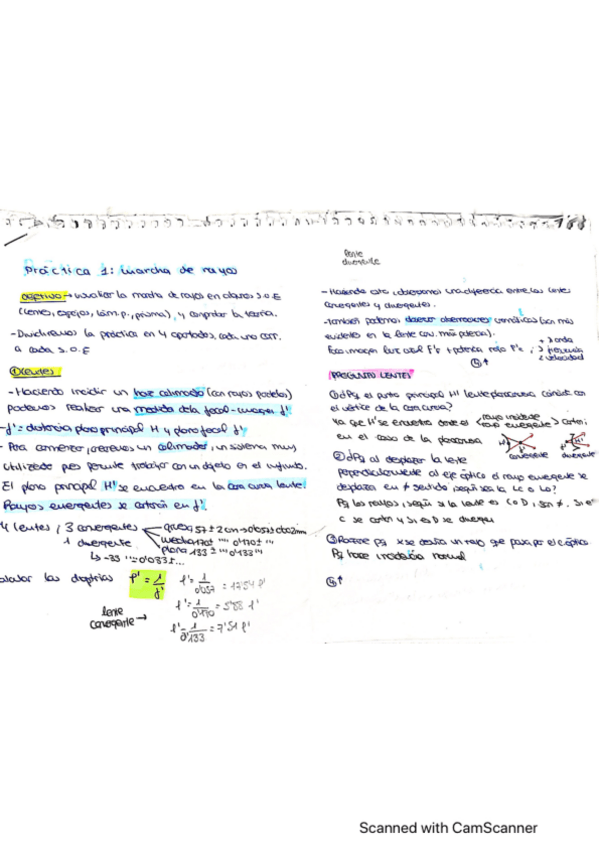 Práctica 1: Marcha de rayos
Objetivo → visualizar la marcha de rayos en algunos S.O.E
(lentes, espejos, lám. p., prisma), y comprobar la teoría.
- Dividiremos la práctica en 4 apartados, cada uno corr.
a cada S.O.E
① Lentes
- Haciendo incidir un haz colimado (con rayos paralelos)
podemos realizar una medida de la focal-imagen f'
- f' = distancia plano principal H y plano focal f'
- Para comenzar, creamos un colimador, un sistema muy
utilizado pues permite trabajar con un objeto en el infinito.
El plano principal H' se encuentra en la cara curva lente.
Rayos emergentes se cortarán en f'.
4 lentes, 3 convergentes
1 divergente
plana 133 ± "" 0'133 ""
↳ -33
calcular las dioptrías P' = 1/f'
P' = 1/0'057 = 17'54 P'
P' = 1/0'170 = 5'88 P'
P' = 1/0'133 = 7'51 P'
lente
convergente →
lente
divergente
- Haciendo esto, observamos una diferencia entre las lentes
convergentes y divergentes.
- También podemos observar aberraciones cromáticas (son más
evidentes en la lente con más potencia).
+ λ onda
↓ frecuencia
↓ velocidad
④↑
PREGUNTAS LENTES
① ¿Pq el punto principal H' lente planocurva coincide con
el vértice de la cara curva?
Ya que H' se encuentra donde el rayo incidente
rayo emergente > cortan;
en el caso de la planocurva
convergente
divergente
② ¿Pq al desplazar la lente
perpendicularmente al eje óptico el rayo emergente se
desplaza en ≠ sentido según sea la LC o LD?
Pq los rayos, según si la lente es C o D, son ≠. Si es
C se cortan y si es D se divergen
Pq hace incidencia normal
④↑
Scanned with CamScanner